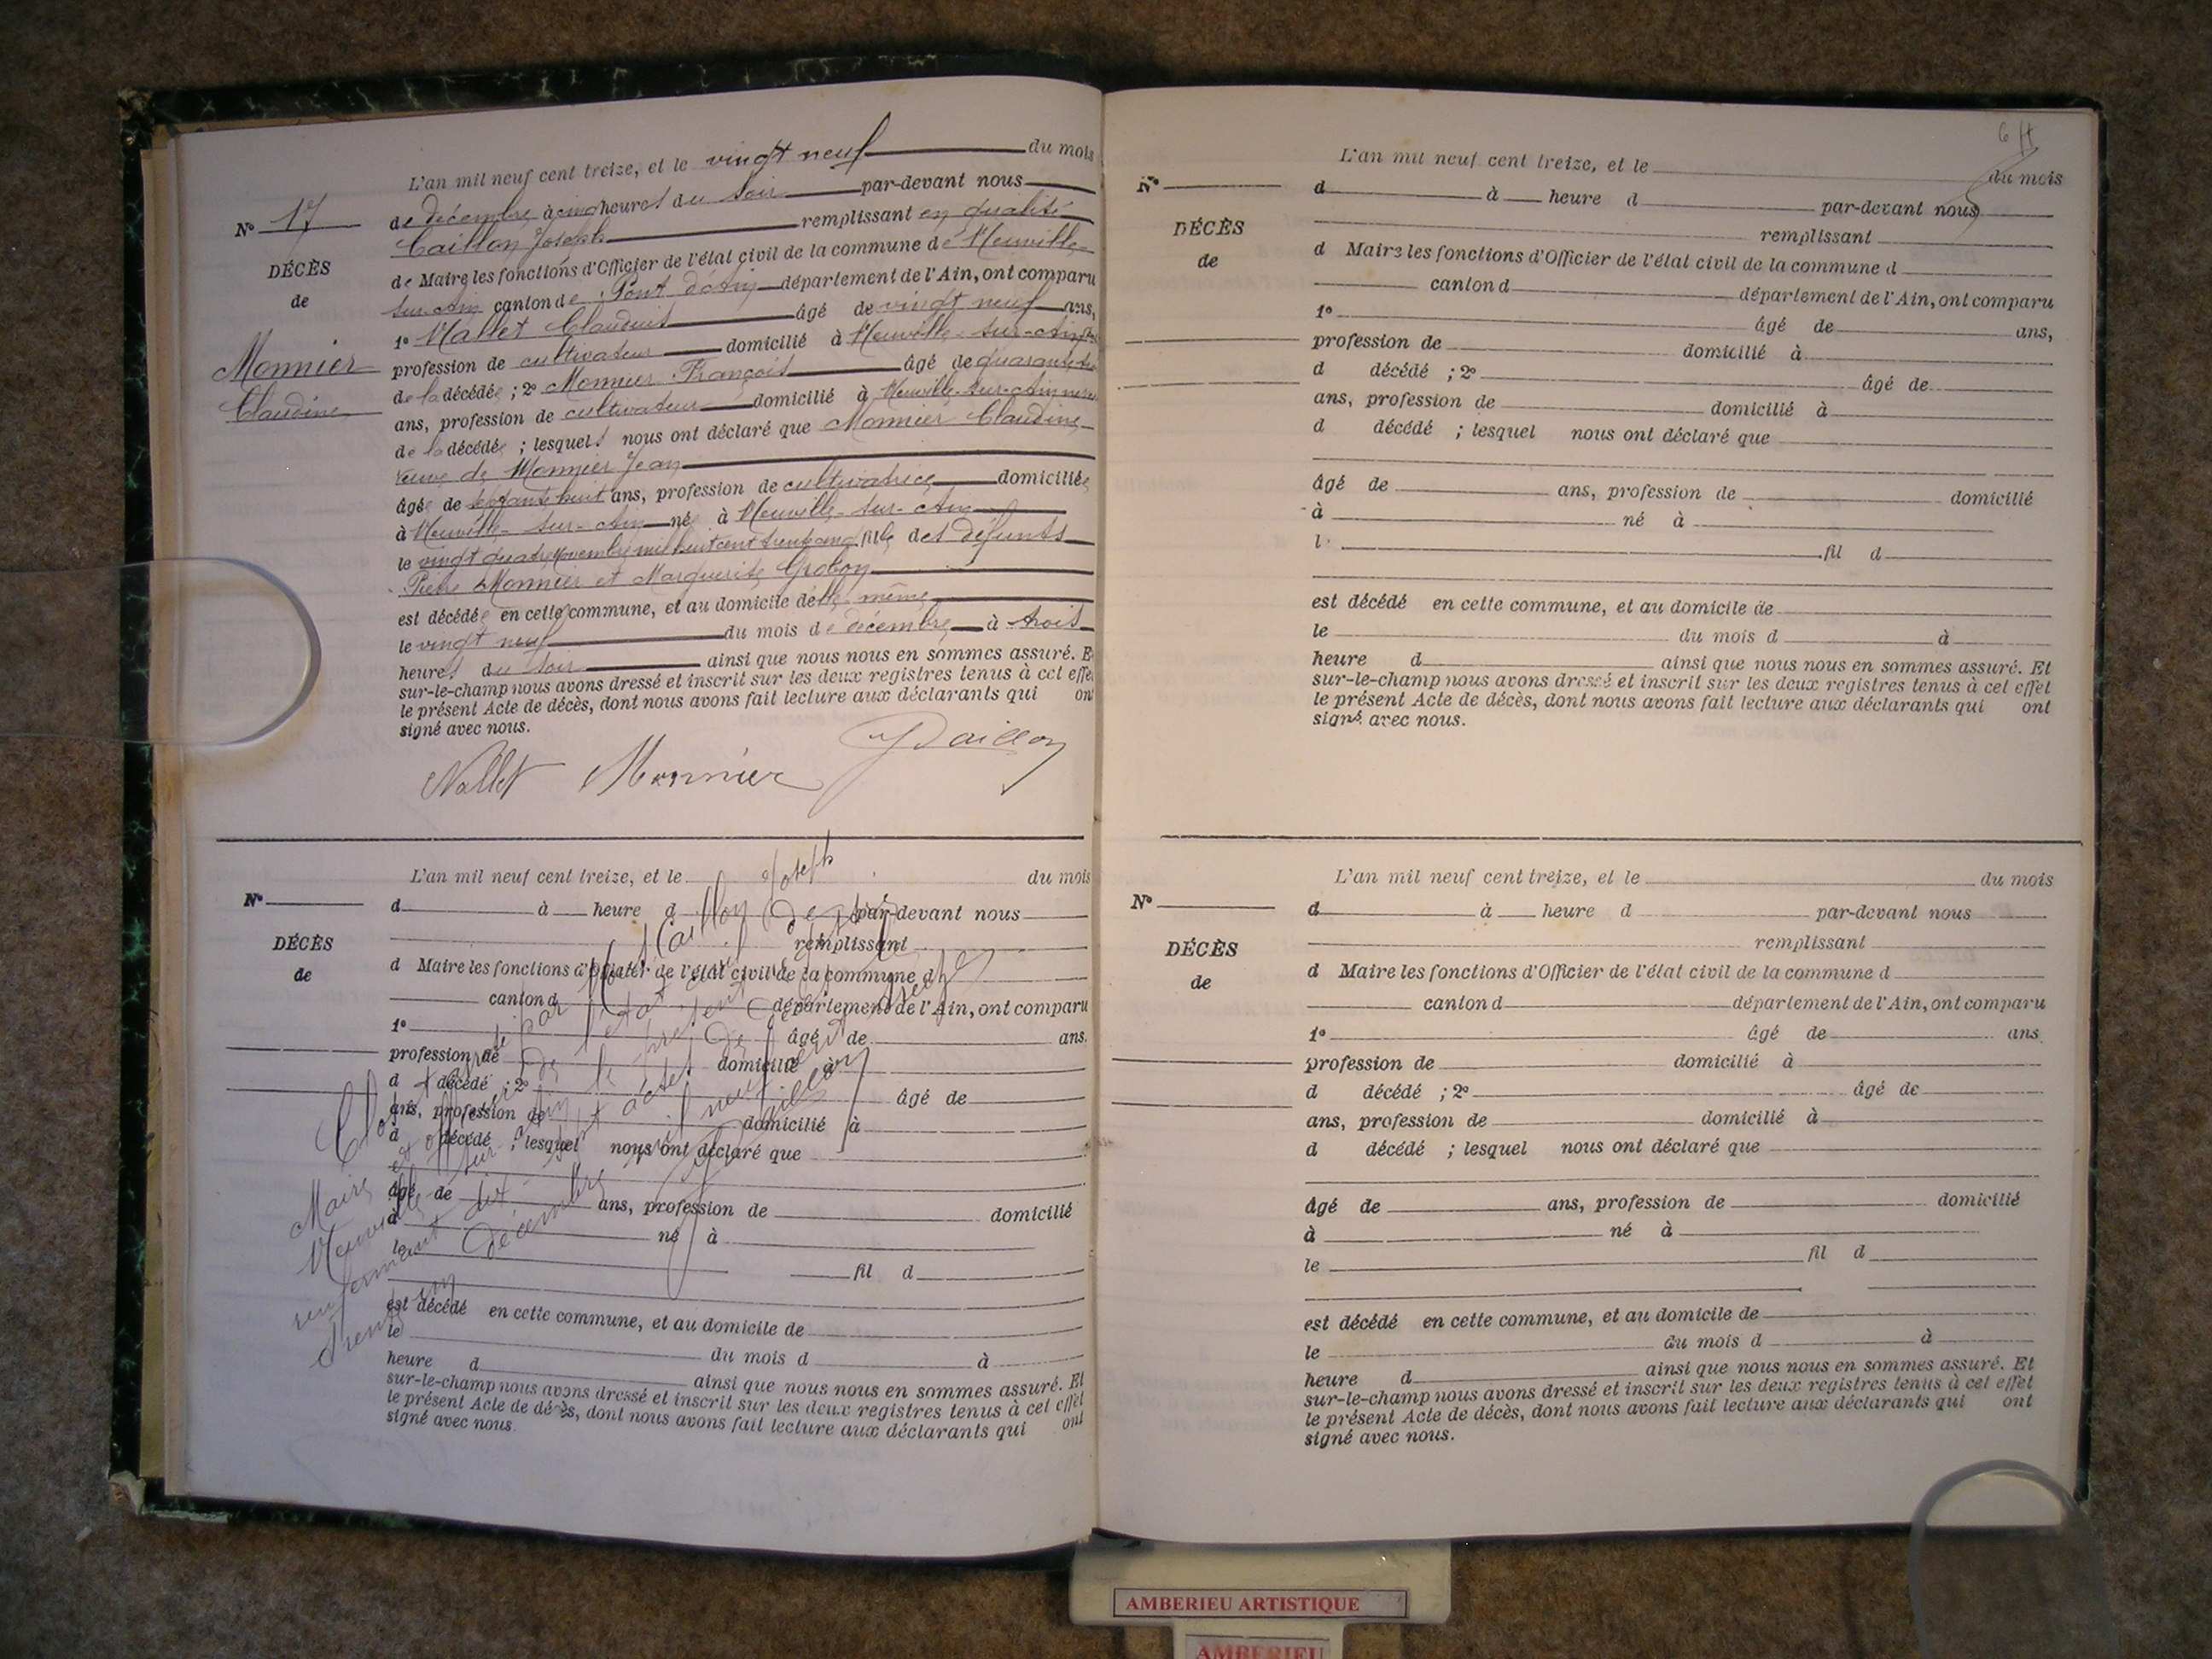 L'an mil neuf cent treize, et le vingt neuf du mois
de décembre à cinq heures du soir par-devant nous
Caillon Joseph remplissant en qualité
de Maire les fonctions d'Officier de l'état civil de la commune de Neuville
sur-Ain canton de Pont d'Ain département de l'Ain, ont comparu
1º Nallet Claudius âgé de vingt neuf ans,
profession de cultivateur domicilié à Neuville-sur-Ain
de la décédée ; 2º Monnier François âgé de quarante
ans, profession de cultivateur domicilié à Neuville-sur-Ain neveu
de la décédée ; lesquels nous ont déclaré que Monnier Claudine
veuve de Monnier Jean
âgée de septante huit ans, profession de cultivatrice domiciliée
à Neuville-sur-Ain née à Neuville-sur-Ain
le vingt quatre novembre mil huit cent trente cinq fille des défunts
Pierre Monnier et Marguerite Grobon
est décédée en cette commune, et au domicile d'elle même
le vingt neuf du mois de décembre à trois
heures du soir ainsi que nous nous en sommes assuré. E
sur-le-champ nous avons dressé et inscrit sur les deux registres tenus à cet effe
le présent Acte de décès, dont nous avons fait lecture aux déclarants qui ont
signé avec nous.
Nº 17
DÉCÈS
de
Monnier
Claudine
Nallet Monnier J Caillon
L'an mil neuf cent treize, et le du mois
d à heure d par-devant nous
remplissant
d Maire les fonctions d'Officier de l'état civil de la commune d
canton d département de l'Ain, ont comparu
1º âgé de ans.
profession de domicilié à
d décédé ; 2º âgé de
ans, profession de domicilié à
d décédé ; lesquel nous ont déclaré que
âgé de ans, profession de domicilié
à né à
le fil d
est décédé en cette commune, et au domicile de
le du mois d à
heure d ainsi que nous nous en sommes assuré. Et
sur-le-champ nous avons dressé et inscrit sur les deux registres tenus à cet effet
le présent Acte de décès, dont nous avons fait lecture aux déclarants qui ont
signé avec nous.
Nº
DÉCÈS
de
Clos et arrêté par Nous Caillon Joseph
Maire et officier de l'état civil de
Neuville sur Ain le présent registre
renfermant dix sept actes de décès
trente un décembre mil neuf cent treize
Caillon
6 ft
L'an mil neuf cent treize, et le du mois
d à heure d par-devant nous
remplissant
d Maire les fonctions d'Officier de l'état civil de la commune d
canton d département de l'Ain, ont comparu
1º âgé de ans,
profession de domicilié à
d décédé ; 2º âgé de
ans, profession de domicilié à
d décédé ; lesquel nous ont déclaré que
âgé de ans, profession de domicilié
à né à
l fil d
est décédé en cette commune, et au domicile de
le du mois d à
heure d ainsi que nous nous en sommes assuré. Et
sur-le-champ nous avons dressé et inscrit sur les deux registres tenus à cet effet
le présent Acte de décès, dont nous avons fait lecture aux déclarants qui ont
signé avec nous.
Nº
DÉCÈS
de
L'an mil neuf cent treize, et le du mois
d à heure d par-devant nous
remplissant
d Maire les fonctions d'Officier de l'état civil de la commune d
canton d département de l'Ain, ont comparu
1º âgé de ans
profession de domicilié à
d décédé ; 2º âgé de
ans, profession de domicilié à
d décédé ; lesquel nous ont déclaré que
âgé de ans, profession de domicilié
à né à
le fil d
est décédé en cette commune, et au domicile de
le du mois d à
heure d ainsi que nous nous en sommes assuré. Et
sur-le-champ nous avons dressé et inscrit sur les deux registres tenus à cet effet
le présent Acte de décès, dont nous avons fait lecture aux déclarants qui ont
signé avec nous.
Nº
DÉCÈS
de
AMBERIEU ARTISTIQUE
AMBERIEU